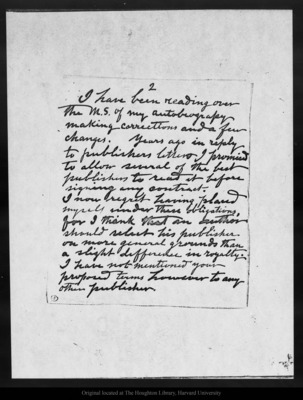 2
I have been reading over
the M.S. of my autobiography
making corrections and a few
changes. Years ago in reply
to publishers letters I promised
to allow several of the best
publishers to read it before
signing any contract.
I now regret having placed
myself under these obligations,
for I think that an author
should select his publisher
on more general grounds than
a slight difference in royalty.
I have not mentioned your
proposed terms however to any
other publisher
Original located at The Houghton Library, Harvard University